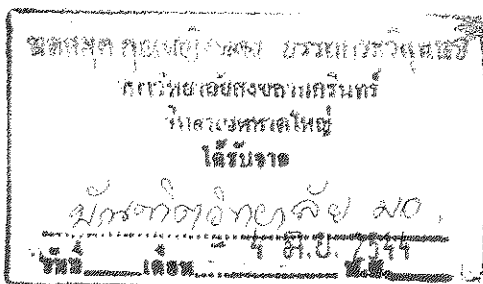 หอสมุด คุณหญิงหลง อรรถกระวีสุนทร
มหาวิทยาลัยสงขลานครินทร์
วิทยาเขตหาดใหญ่
ได้รับจาก
บัณฑิตวิทยาลัย มอ.
วันที่ เดือน - 4 มิ.ย. 2544 พ.ศ.